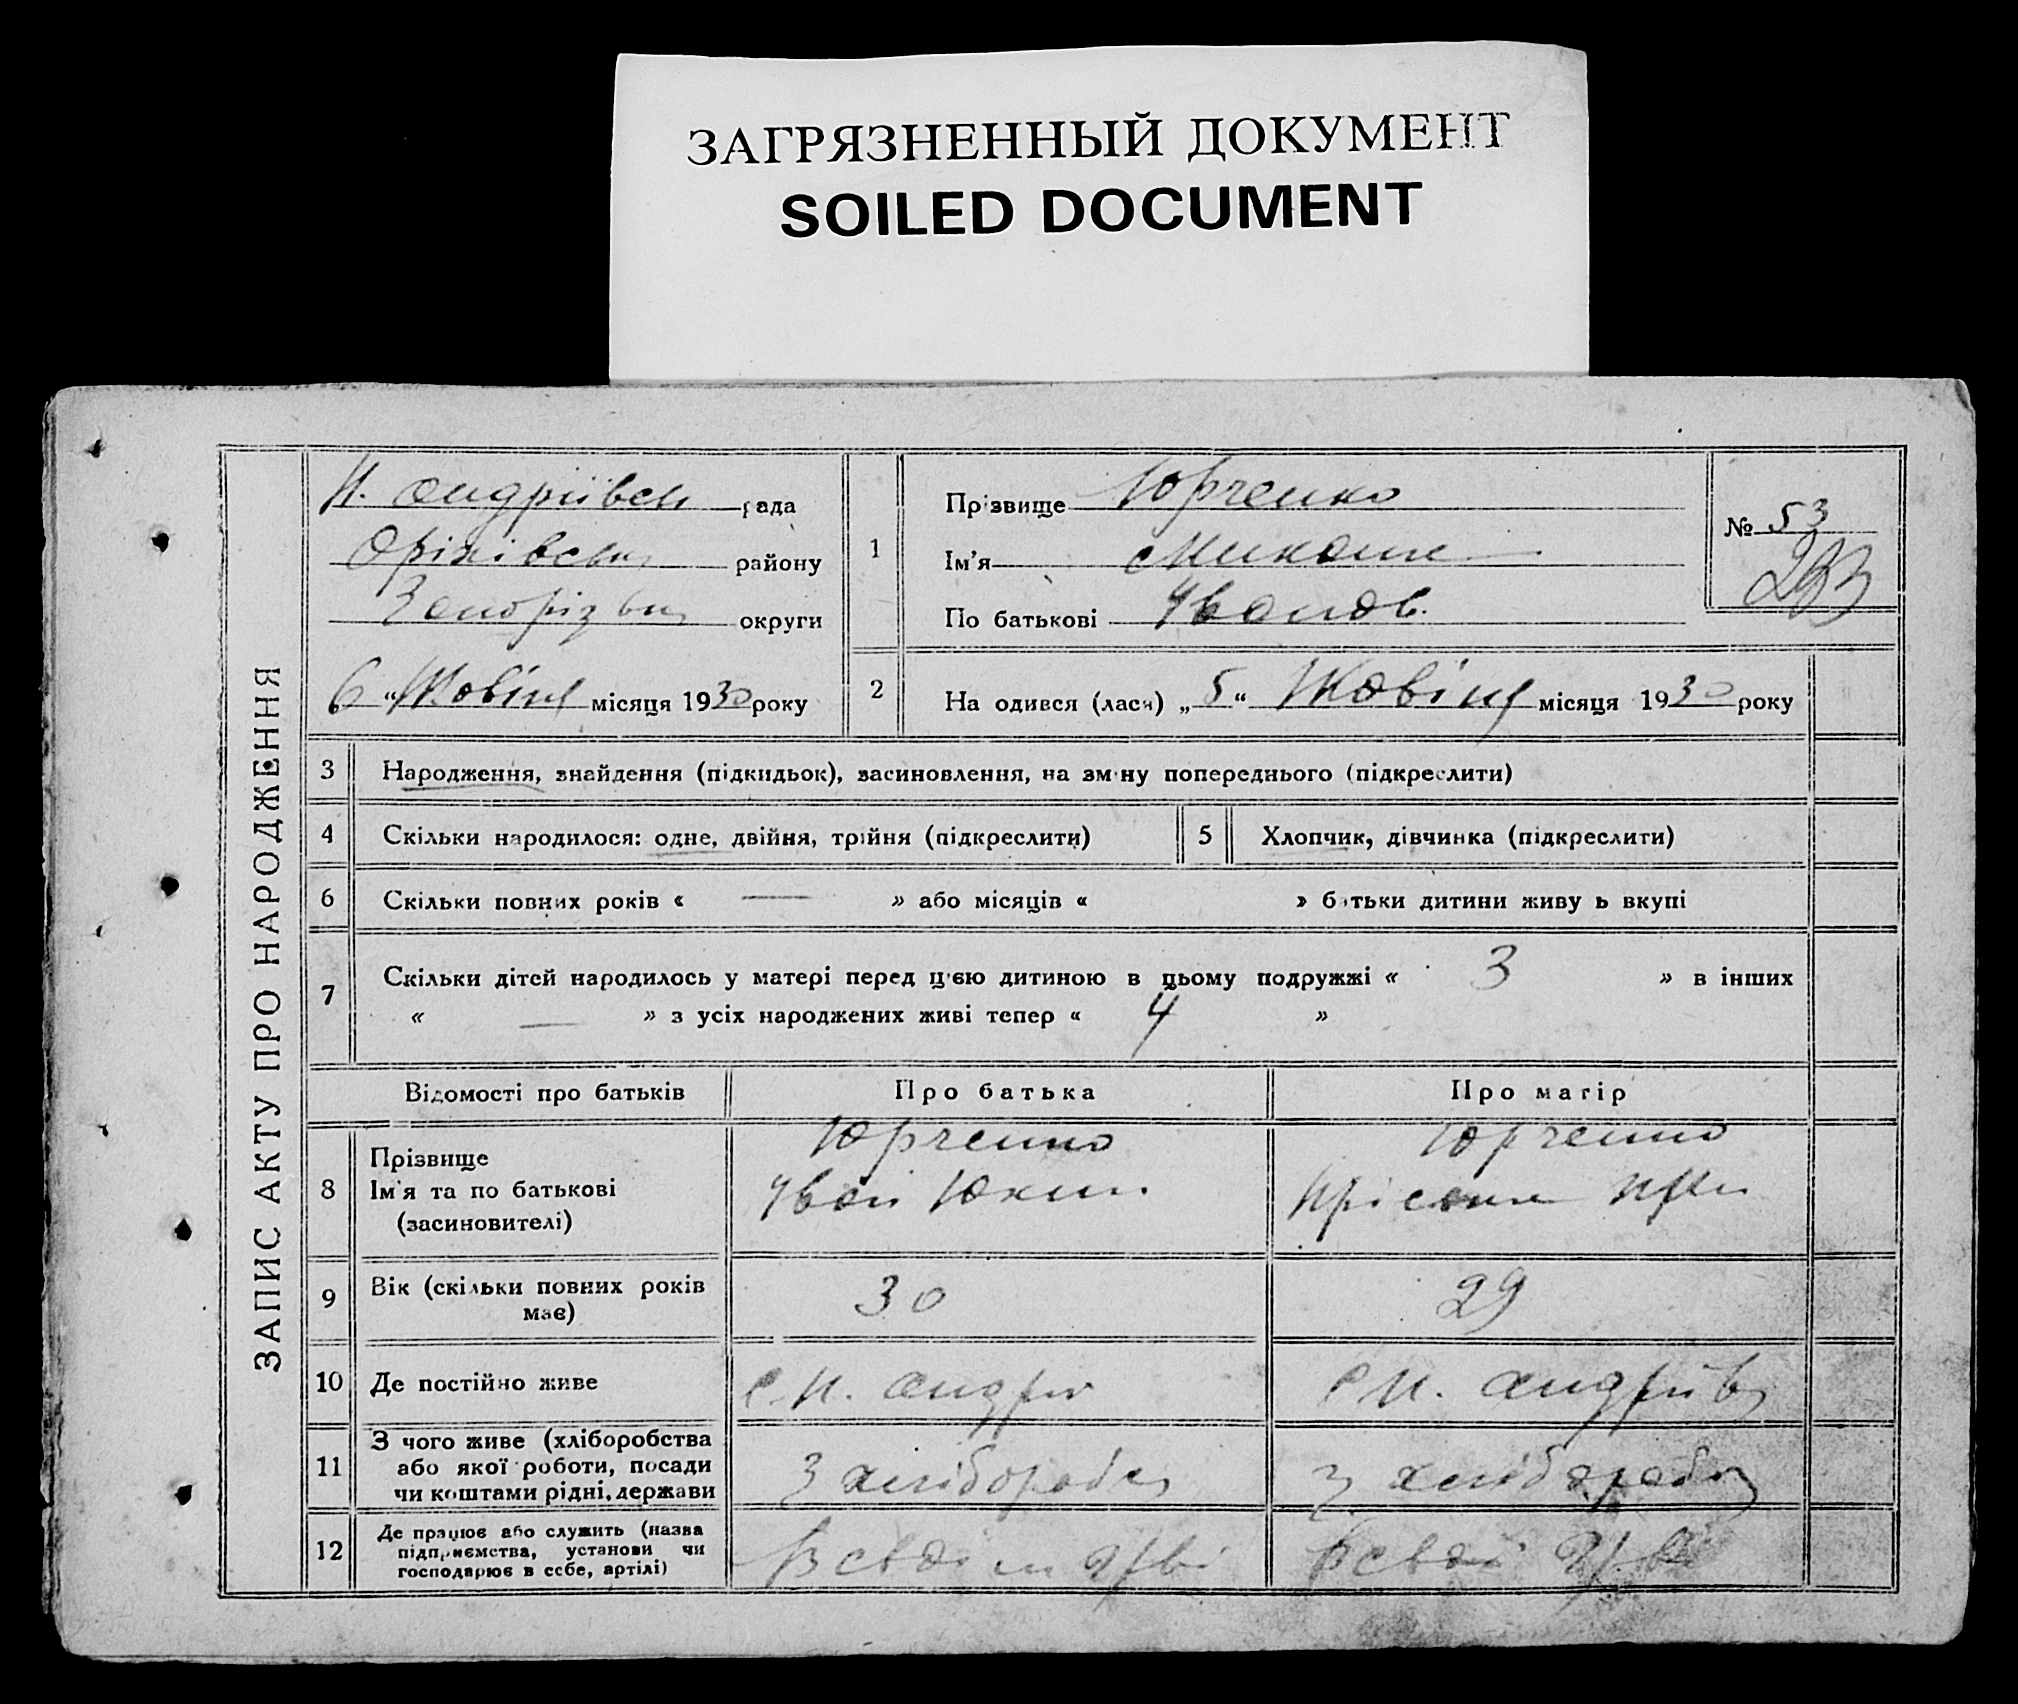 ЗАГРЯЗНЕННЫЙ ДОКУМЕНТ
SOILED DOCUMENT
ЗАПИС АКТУ ПРО НАРОДЖЕННЯ
Н. Андріївськ рада
Оріхівськ району
Запоріз округи
6 " Жовтня місяця 1930 року
1
Прізвище Юрченко
Ім'я Микола
По батькові Іванов.
№ 53
2 На одився (лася) „ 5 " Жовтня місяця 1930 року
3 Народження, знайдення (підкидьок), засиновлення, на зміну попереднього (підкреслити)
4 Скільки народилося: одне, двійня, трійня (підкреслити) 5 Хлопчик, дівчинка (підкреслити)
6 Скільки повних років « — » або місяців « » батьки дитини живу ь вкупі
7 Скільки дітей народилось у матері перед цією дитиною в цьому подружжі « 3 » в інших
« — » з усіх народжених живі тепер « 4 »
Відомості про батьків Про батька Про матір
8 Прізвище
Ім'я та по батькові
(засиновителі)
Юрченко
Іван Юхим.
Юрченко
9 Вік (скільки повних років
має)
30 29
10 Де постійно живе
с Н. Андрії
с Н. Андріїв
11 З чого живе (хліборобства
або якої роботи, посади
чи коштами рідні, держави
З хлібороб
з хлібороб
12 Де працює або служить (назва
підприємства, установи чи
господарює в себе, артілі)
В своі
В своі